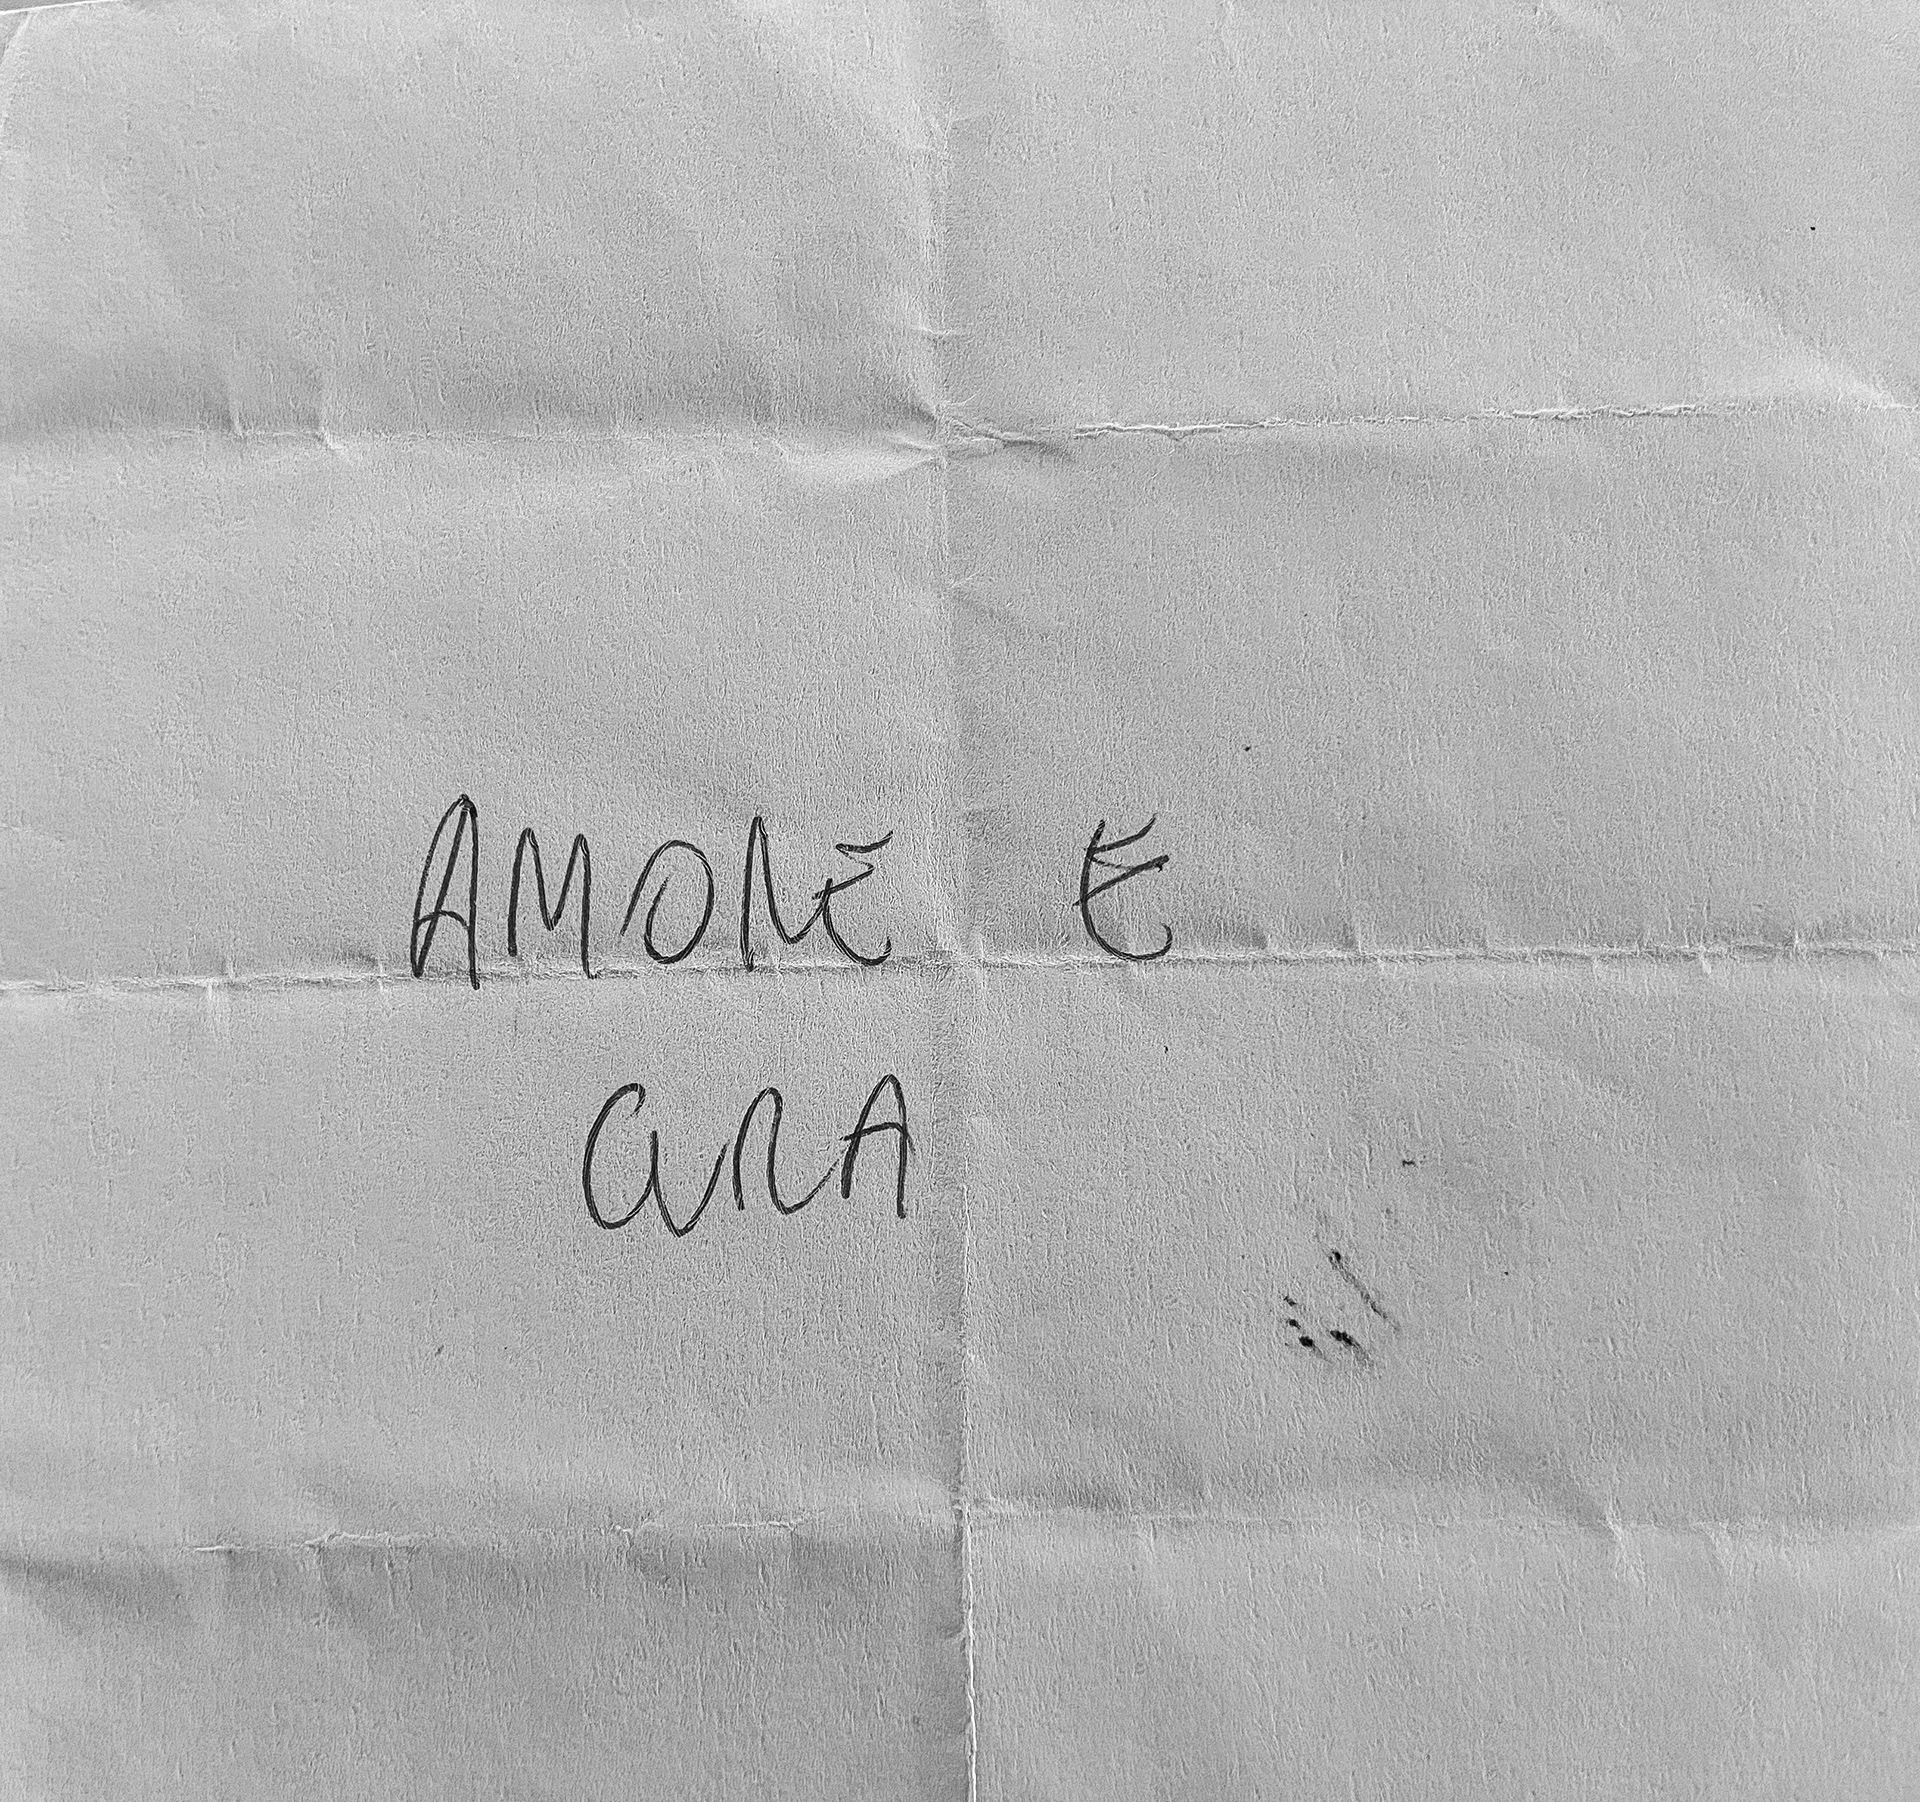 AMORE E
CURA